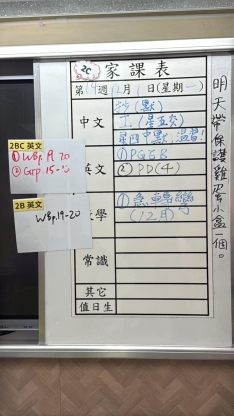 2C 家課表
第14週12月1日(星期一)
中文
抄(默)
工(星五交)
星四中默,溫習!
英文
①PGGB
②PD(4)
數學
①急轉彎
(12月)
常識
其它
值日生
2BC 英文
①WBp.19-20
2B 英文
WBp.19-20
明天帶保護雞蛋小盒一個。